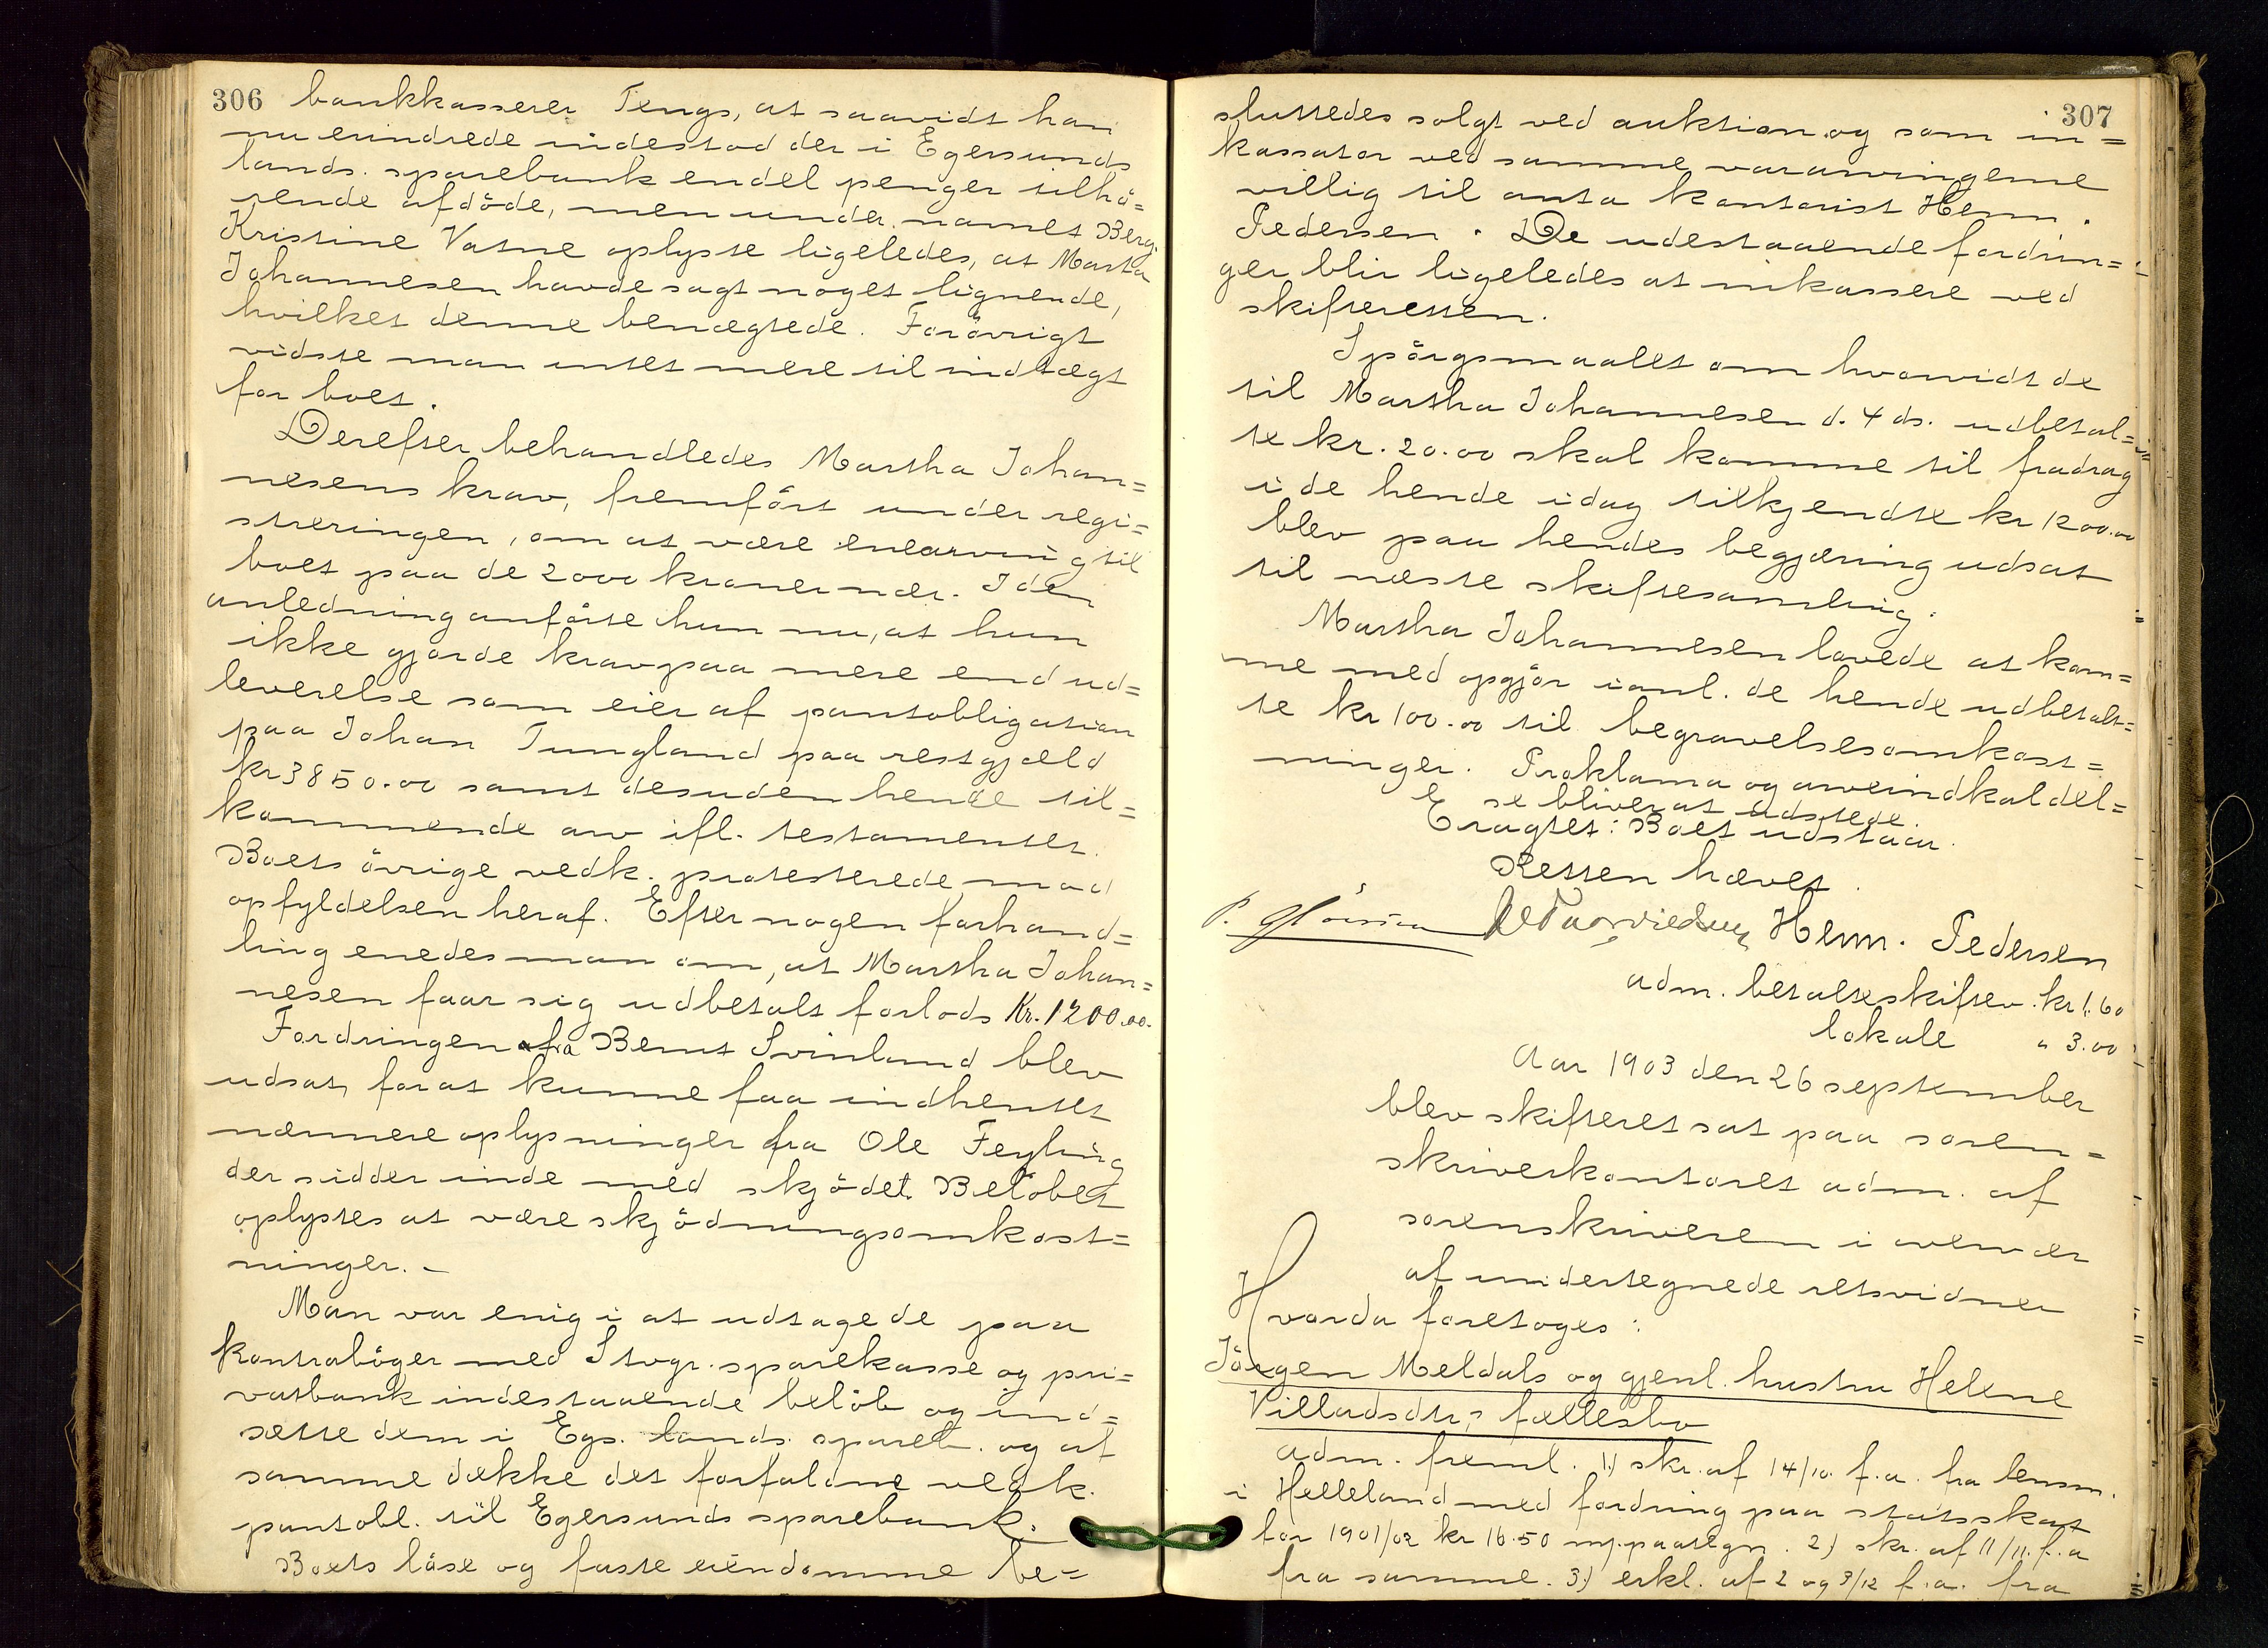 306 bankkasserer Tengs, at saavidt han
nu erindrede indestod der i Egersunds
lands. sparebank endel penger tilhö=
rende afdöde, men under navnet Berg.
Kristine Vatne oplyste ligeledes, at Marta
Johannesen havde sagt noget lignende,
hvilket denne benægtede. Forövrigt
vidste man intet mere til indtægt
for boet.
Derefter behandledes Martha Johan=
nesens krav, fremfört under regi=
streringen, om at være enearving til
boet paa de 2000 kroner nær. I den
anledning anförte hun nu, at hun
ikke gjorde krav paa mere end ud=
leverelse som eier af pantobligation
paa Johan Tungland paa restgjæld
kr 3850.00 samt desuden hende til=
kommende arv ifl. testamentet.
Boets övrige vedk. protesterede mod
opfyldelsen heraf. Efter nogen forhand=
ling enedes man om, at Martha Johan=
nesen faar sig udbetalt forlods Kr. 1200.00.
Fordringen fra Bernt Svinland blev
udsat, for at kunne faa indhentet
nærmere oplysninger fra Ole Feyling
der sidder inde med skjödet. Belöbet
oplystes at være skjödningsomkost=
ninger. –
Man var enig i at udtage de paa
kontraböger med Stvgr. sparekasse og pri=
vatbank indestaaende belöb og ind=
sætte dem i Egs. lands. spareb. og at
samme dække det forfaldne vedk.
pantobl. til Egersunds sparebank.
Boets löse og faste eiendomme be=
307
sluttedes solgt ved auktion og som in=
kassator ved samme var arvingerne
villig til anta kontorist Herm.
Pedersen. De udestaaende fordrin=
ger blir ligeledes at inkassere ved
skifteretten.
Spörgsmaalet om hvorvidt de
til Martha Johannesen d. 4 ds. udbetal=
te kr. 20.00 skal komme til fradrag
i de hende idag tilkjendte kr 1200.00
blev paa hendes begjæring udsat
til næste skiftesamling.
Martha Johannesen lovede at kom=
me med opgjör i anl. de hende udbetalt=
te kr 100.00 til begravelsesomkost=
ninger. Proklama og arveindkaldel=
se bliver at udstede.
Eragtet: Boet udstaar.
Retten hævet.
P. Herm. Pedersen
adm. betalte skiftev. kr 1.60
lokale " 3.00
Aar 1903 den 26 september
blev skifteret sat paa soren=
skriverkontoret adm. af
sorenskriveren i overvær
af undertegnede retsvidner
Hvorda foretoges:
Jörgen Meldals og gjenl. hustru Helene
Villadsdtr,s fællesbo
Adm. freml. 1) skr. af 14/10. f.a. fra lensm.
i Helleland med fordring paa statsskat
for 1901/02 kr 16.50 m. paategn. 2) skr. af 11/11. f.a
fra samme. 3) erkl. af 2 og 3/12 f.a. fra